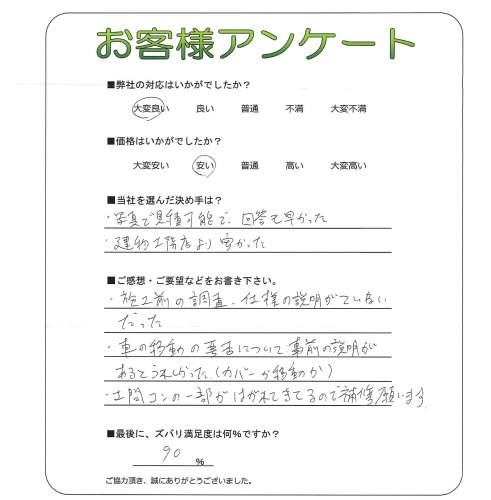 お客様アンケート
■弊社の対応はいかがでしたか？
大変良い 良い 普通 不満 大変不満
■価格はいかがでしたか？
大変安い 安い 普通 高い 大変高い
■当社を選んだ決め手は？
・写真で見積可能で、回答も早かった
・建物工務店より安かった
■ご感想・ご要望などをお書き下さい。
・施工前の調査、仕様の説明がていねい
だった
・車の移動の要否について事前の説明が
あるとうれしかった（カバーか移動か）
・土間コンの一部がはがれてきてるので補修願います
■最後に、ズバリ満足度は何％ですか？
90 %
ご協力頂き、誠にありがとうございました。